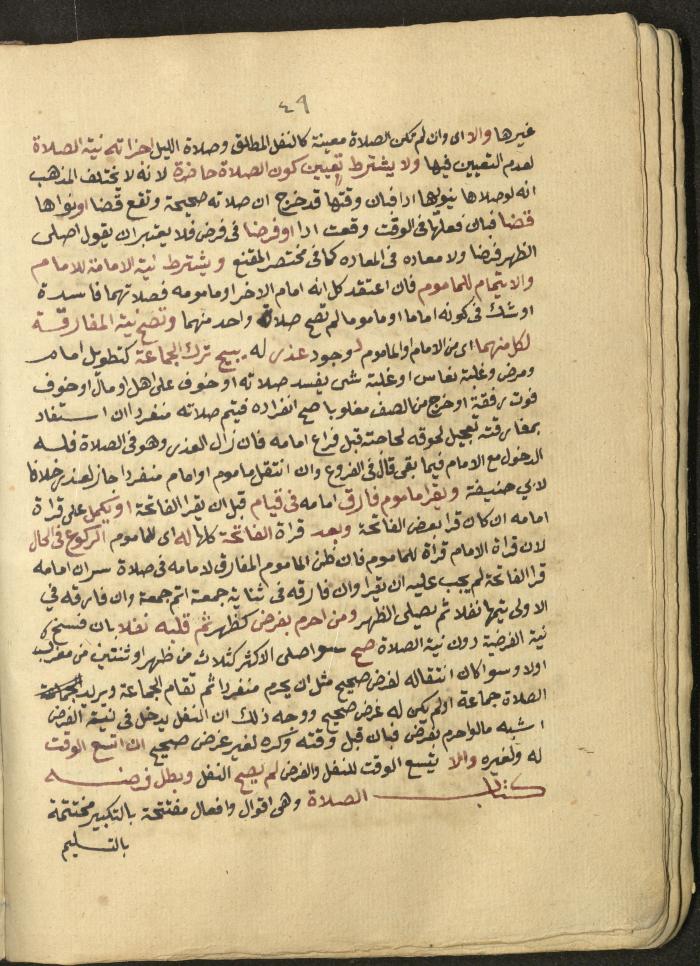 ٤٩
غيرها والا اى وان لم تكن الصلاة معينة كالنفل المطلق وصلاة الليل اجزاته نية الصلاة
لعدم التعيين فيها ولا يشترط تعيين كون الصلاة حاضرة لانه لا يختلف المذهب
انه لو صلاها ينويها ادا فبان وقتها قد خرج ان صلاته صحيحة وتقع قضا او نواها
قضا فبان فعلها فى الوقت وقعت ادا او فرضا فى فرض فلا يعتبر ان يقول اصلى
الظهر فرضا ولا معاده فى المعاده كما فى مختصر المقنع ويشترط نية الامامة للامام
والايتمام للماموم فان اعتقد كل انه امام الاخر او مامومه فصلاتهما فاسدة
او شك فى كونه اماما او ماموما لم تصح صلاة واحد منهما وتصح نية المفارقة
لكل منهما اى من الامام والماموم لوجود عذر له يبيح ترك الجماعة كتطويل امام
ومرض وغلبة نعاس او غلبة شى يفسد صلاته او خوف على اهل او مال او خوف
فوت رفقة او خرج من الصف مغلوبا صح انفراده فيتم صلاته منفردا ان استفاد
بمفارقته تعجيل لحوقه لحاجته قبل فراغ امامه فان زال العذر وهو فى الصلاة فله
الدخول مع الامام فيما بقى قال فى الفروع وان انتقل ماموم او امام منفردا جاز لعذر خلافا
لابي حنيفة ويقرا ماموم فارق امامه فى قيام قبل ان يقرا الفاتحة او يكمل على قراة
امامه ان كان قرا بعض الفاتحة وبعد قراة الفاتحة كلها له اى للماموم الركوع فى الحال
لان قراة الامام قراة للماموم فان ظن الماموم المفارق لامامه فى صلاة سر ان امامه
قرا الفاتحة لم يجب عليه ان يقرا وان فارقه فى ثانية جمعة اتم جمعة وان فارقه في
الاولى يتمها نفلا ثم يصلى الظهر ومن احرم بفرض كظهر ثم قلبه نفلا بان فسخ
نية الفرضية دون نية الصلاة صح سوا صلى الاكثر كثلاث من ظهر او ثنتين من مغرب
اولا وسوا كان انتقاله لغرض صحيح مثل ان يحرم منفردا ثم تقام الجماعة ويريد
الصلاة جماعة او لم يكن له غرض صحيح ووجه ذلك ان النفل يدخل فى نية الفرض
اشبه ما لو احرم بفرض فبان قبل وقته وكره لغير غرض صحيح ان اتسع الوقت
له ولغيره والا يتسع الوقت للنفل والفرض لم يصح النفل وبطل فرضه
كتاب الصلاة وهى اقوال وافعال مفتتحة بالتكبير مختتمة
بالتسليم